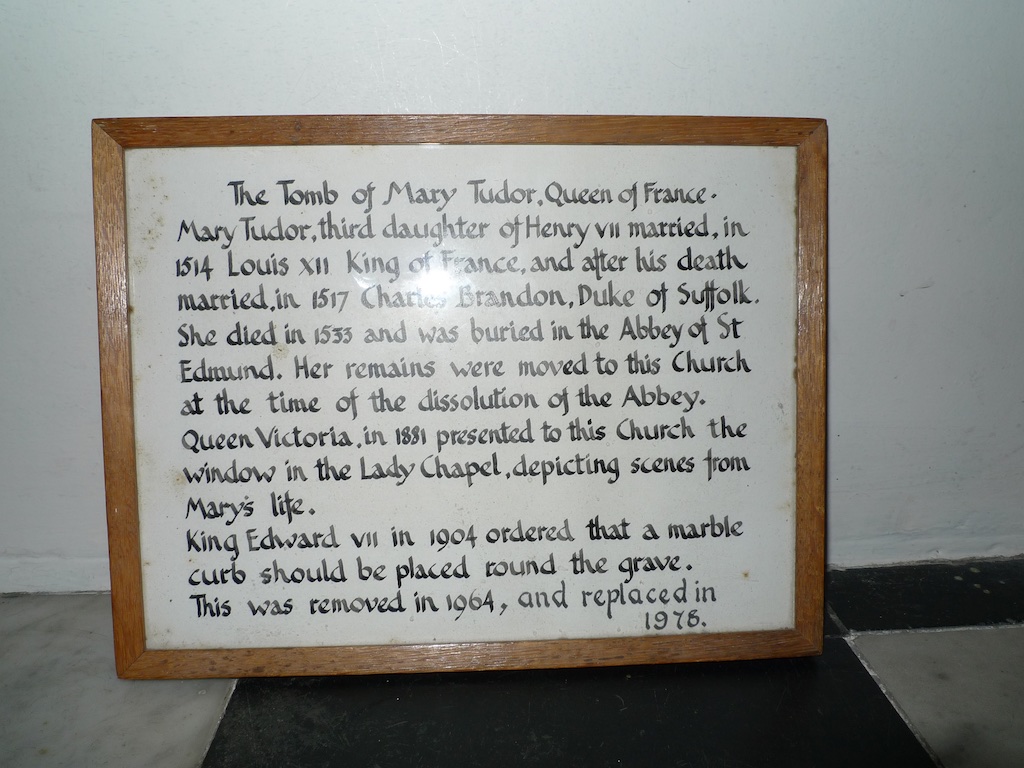 The Tomb of Mary Tudor, Queen of France.
Mary Tudor, third daughter of Henry VII married, in
1514 Louis XII King of France, and after his death
married, in 1517 Charles Brandon, Duke of Suffolk.
She died in 1533 and was buried in the Abbey of St
Edmund. Her remains were moved to this Church
at the time of the dissolution of the Abbey.
Queen Victoria, in 1881 presented to this Church the
window in the Lady Chapel, depicting scenes from
Mary's life.
King Edward VII in 1904 ordered that a marble
curb should be placed round the grave.
This was removed in 1964, and replaced in
1978.